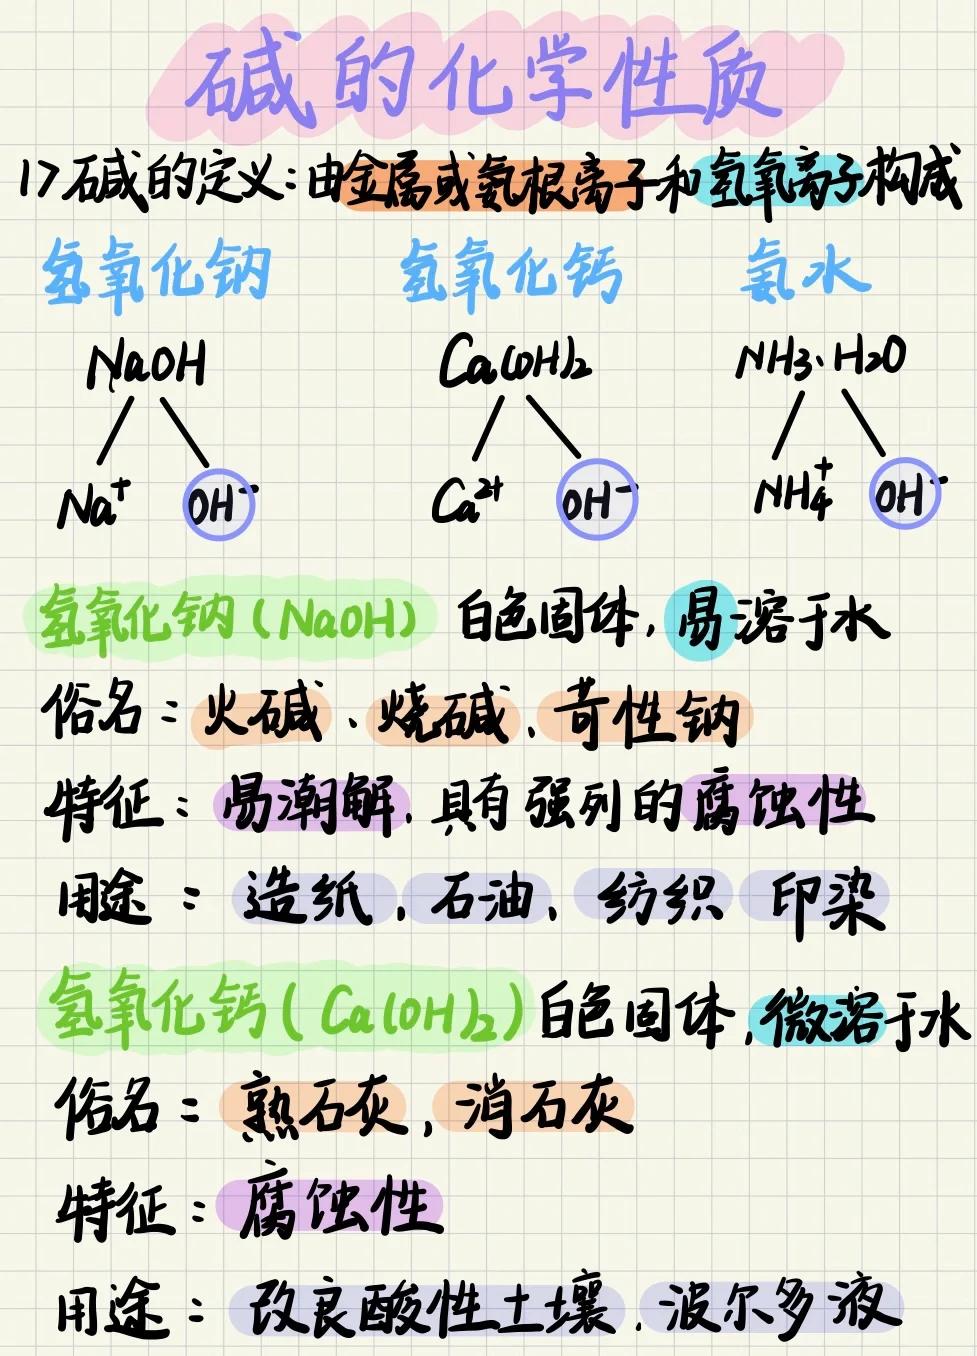 碱的化学性质
1>碱的定义:由金属或氨根离子和氢氧离子构成
氢氧化钠 氢氧化钙 氨水
NaOH Ca(OH)2 NH3·H2O
Na+ OH- Ca2+ OH- NH4+ OH-
氢氧化钠(NaOH) 白色固体,易溶于水
俗名:火碱、烧碱、苛性钠
特征:易潮解,具有强列的腐蚀性
用途:造纸、石油、纺织 印染
氢氧化钙(Ca(OH)2)白色固体,微溶于水
俗名:熟石灰,消石灰
特征:腐蚀性
用途:改良酸性土壤,波尔多液